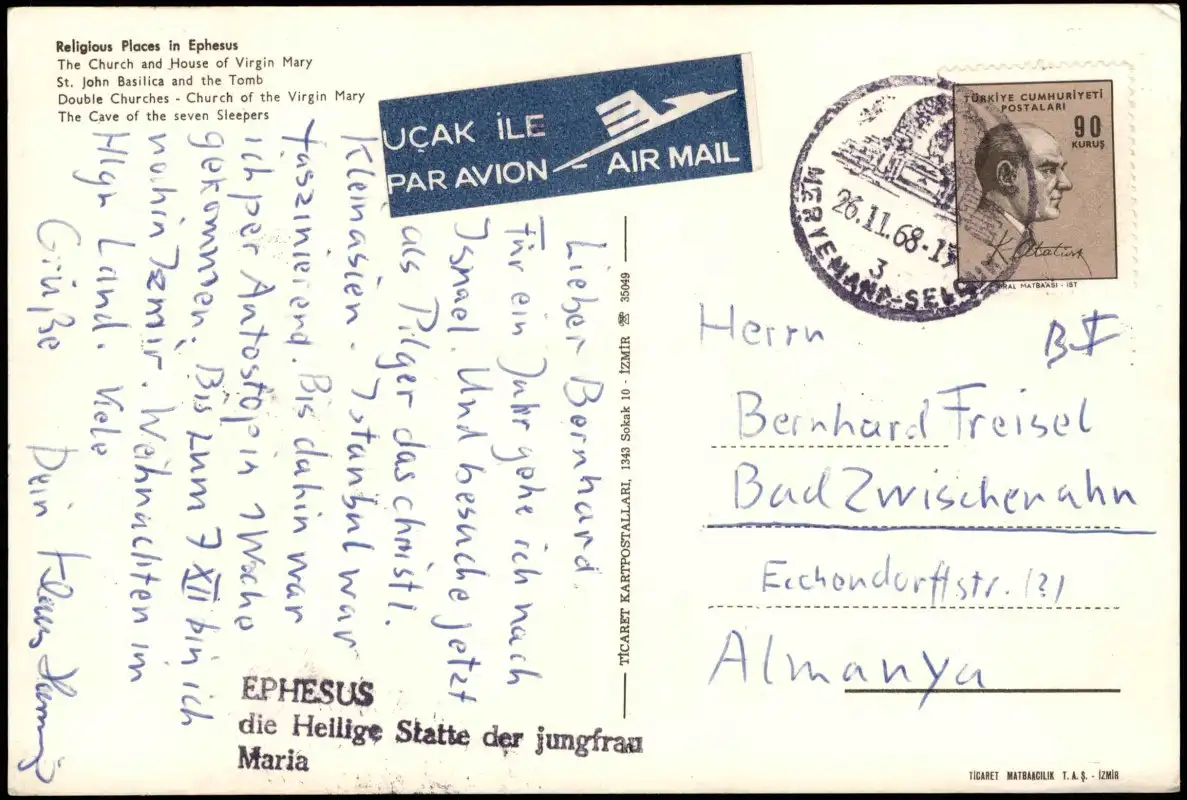 Religious Places in Ephesus
The Church and House of Virgin Mary
St. John Basilica and the Tomb
Double Churches - Church of the Virgin Mary
The Cave of the seven Sleepers
UÇAK İLE
PAR AVION - AIR MAIL
TÜRKİYE CUMHURİYETİ
POSTALARI
90
KURUŞ
K. Atatürk
MATBAASI - İST
MERYEMANA-SELÇUK
26.11.68-17
3
Lieber Bernhard.
Für ein Jahr gehe ich nach
Israel. Und besuche jetzt
als Pilger das christl.
Kleinasien. Istanbul war
faszinierend. Bis dahin war
ich per Autostop in 1 Woche
gekommen. Bis zum 7 XII bin ich
nohin Izmir. Weihnachten im
Hlgn Land. Viele
Grüße
Dein Klaus
EPHESUS
die Heilige Statte der jungfrau
Maria
TİCARET KARTPOSTALLARI, 1343 Sokak 10 - İZMİR ☏ 35049
Herrn
BF
Bernhard Freisel
Bad Zwischenahn
Eichendorffstr. (?)
Almanya
TİCARET MATBAACILIK T. A. Ş. - İZMİR